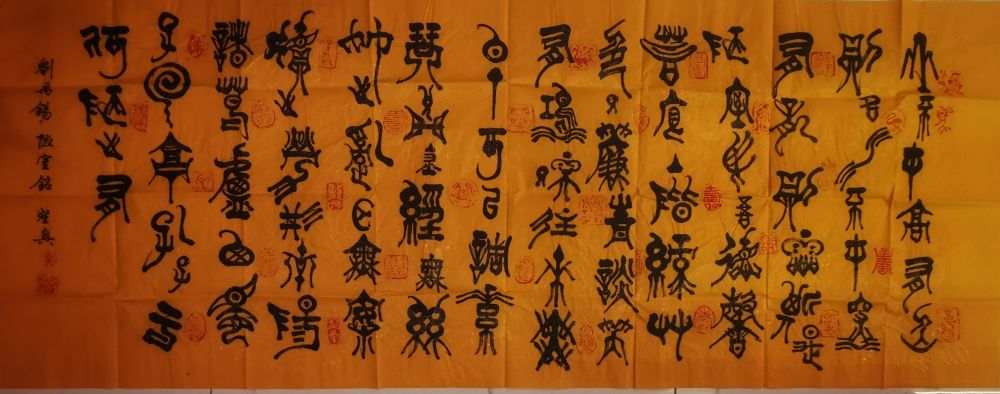 山不在高有仙
則名水不在深
有龍則靈斯是
陋室惟吾德馨
苔痕上階綠草
色入簾青談笑
有鴻儒往來無
白丁可以調素
琴閱金經無絲
竹之亂耳無案
牘之勞形南陽
諸葛廬西蜀
子雲亭孔子云
何陋之有
劉禹錫 陋室銘